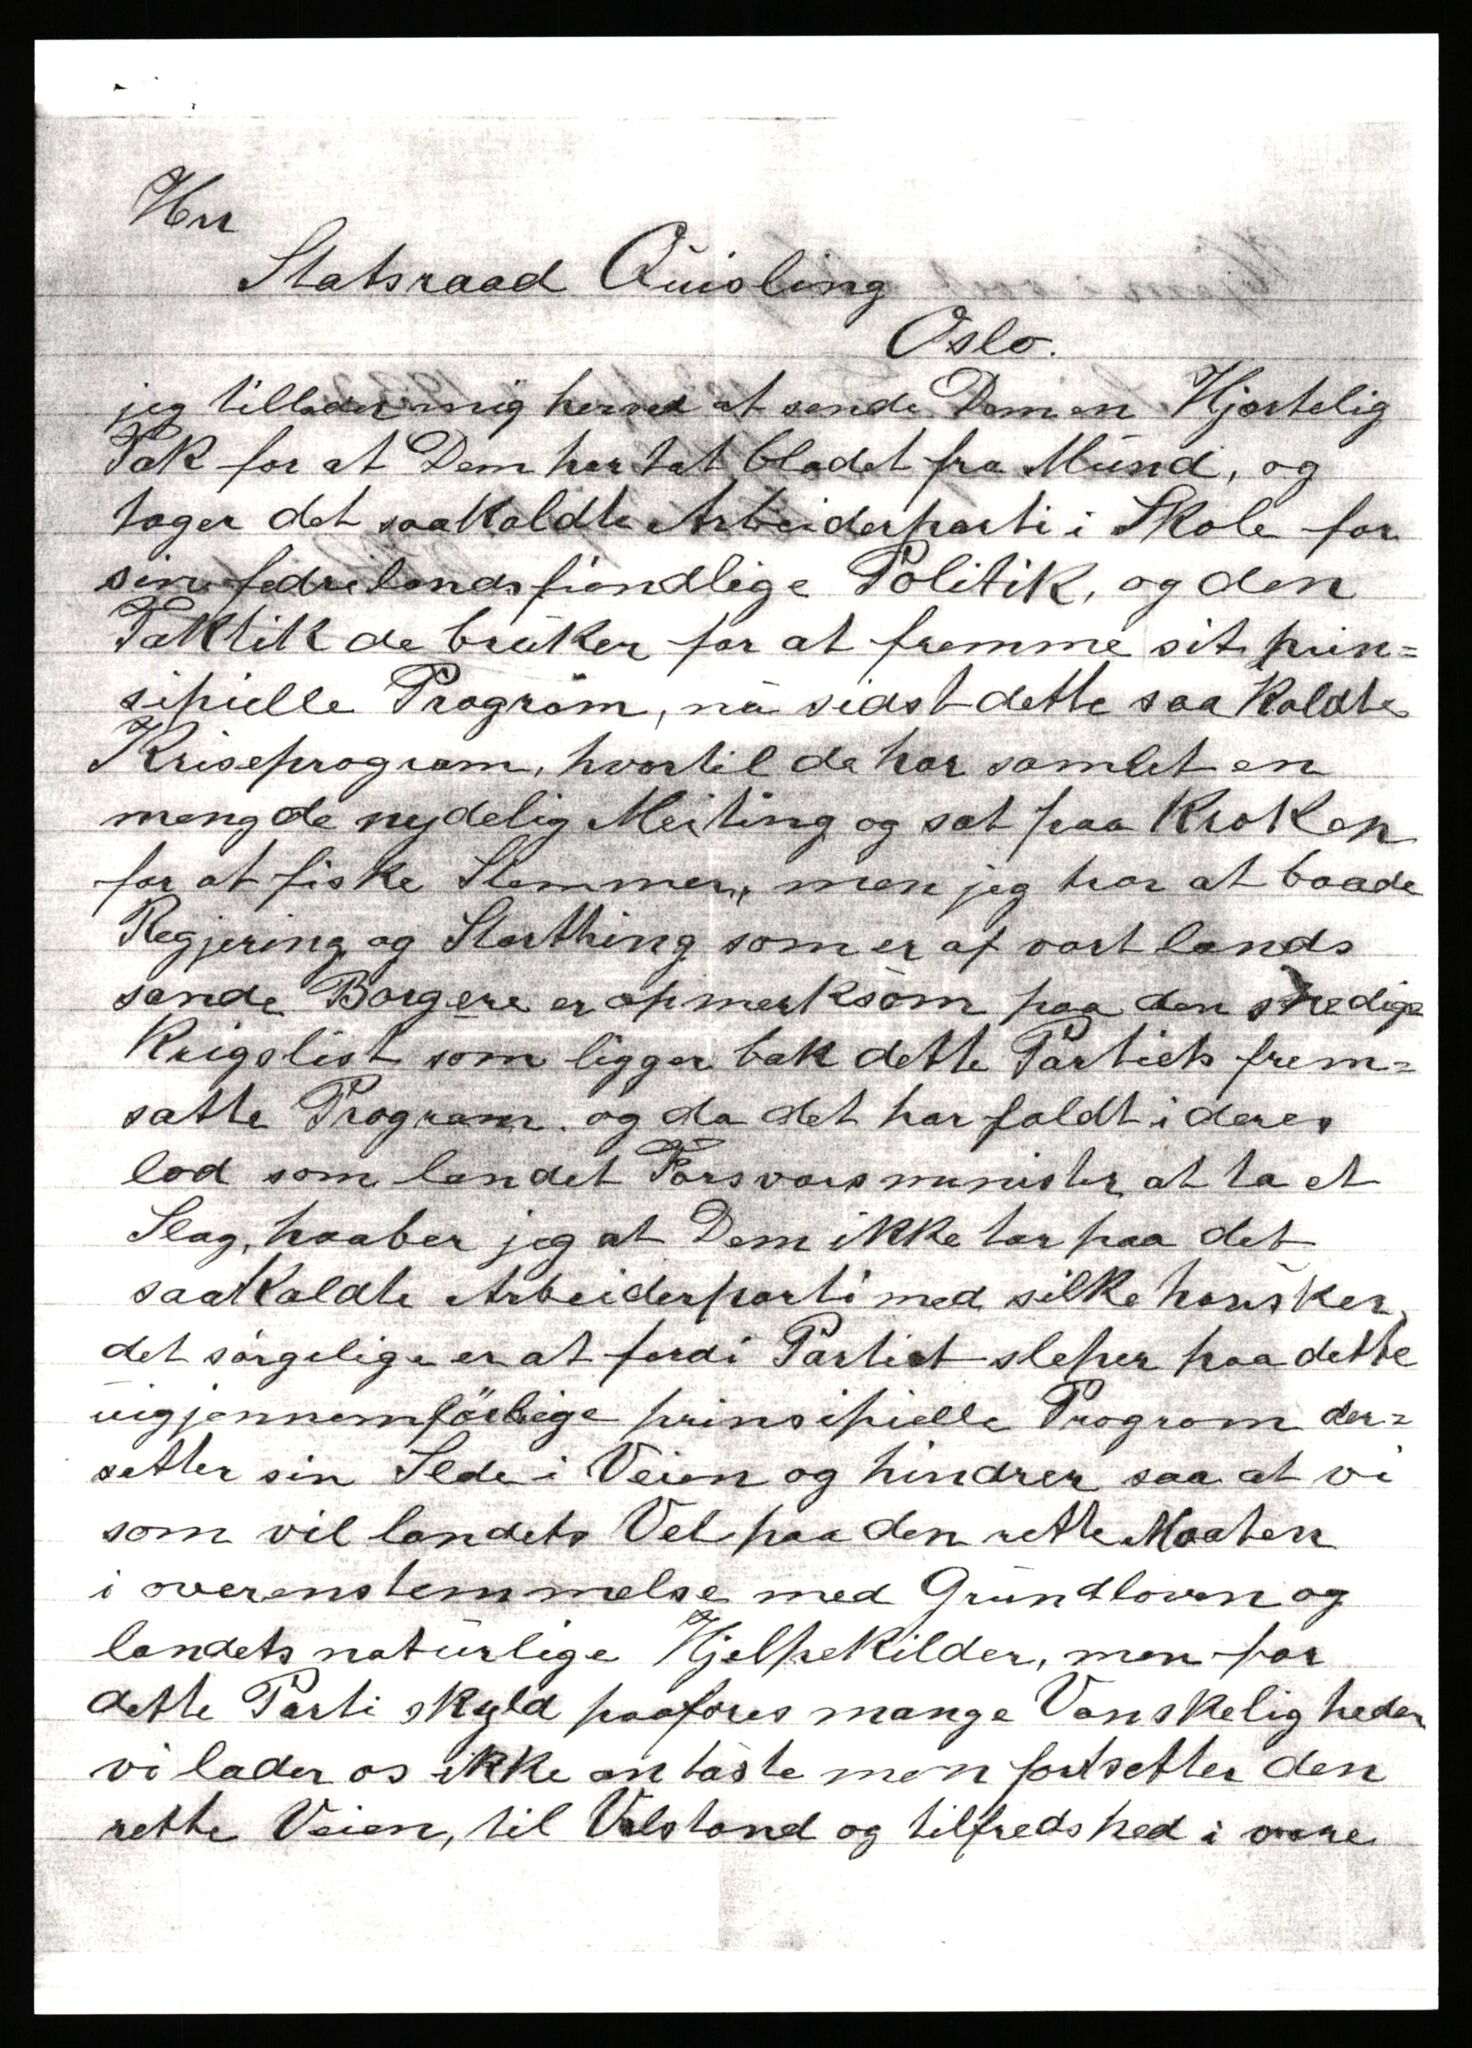 Herr
Statsraad Quisling
Oslo.
jeg tillader mig herved at sende Dem en Hjertelig
Tak for at Dem har tat bladet fra Mund, og
tager det saakaldte Arbeiderparti i Skole for
sin fedrelandsfiendlige Politik, og den
Taktik de bruker for at fremme sit prin=
sipielle Program, nu sidst dette saa kaldte
Kriseprogram, hvortil de har samlet en
mengde nydelig Meiting og sat paa Kroken
for at fiske Stemmer, men jeg tror at baade
Regjering og Storthing som er af vort lands
sande Borgere er opmerksom paa den
Krigslist som ligger bak dette Partiets frem=
satte Program. og da det har faldt i deres
lod som landet Forsvarsminister at ta et
Slag, haaber jeg at Dem ikke tar paa det
saakaldte Arbeiderparti med silke hansker,
det sørgelige er at fordi Partiet sleper paa dette
uigjennemførlige prinsipielle Program der=
setter sin Slede i Veien og hindrer saa at vi
som vil landets Vel paa den rette Maaten
i overenstemmelse med Grundloven og
landets naturlige Hjelpekilder, men for
dette Parti skyld paaføres mange Vanskeligheder
vi lader os ikke antaste men fortsetter den
rette Veien, til Velstand og tilfredshed i vore